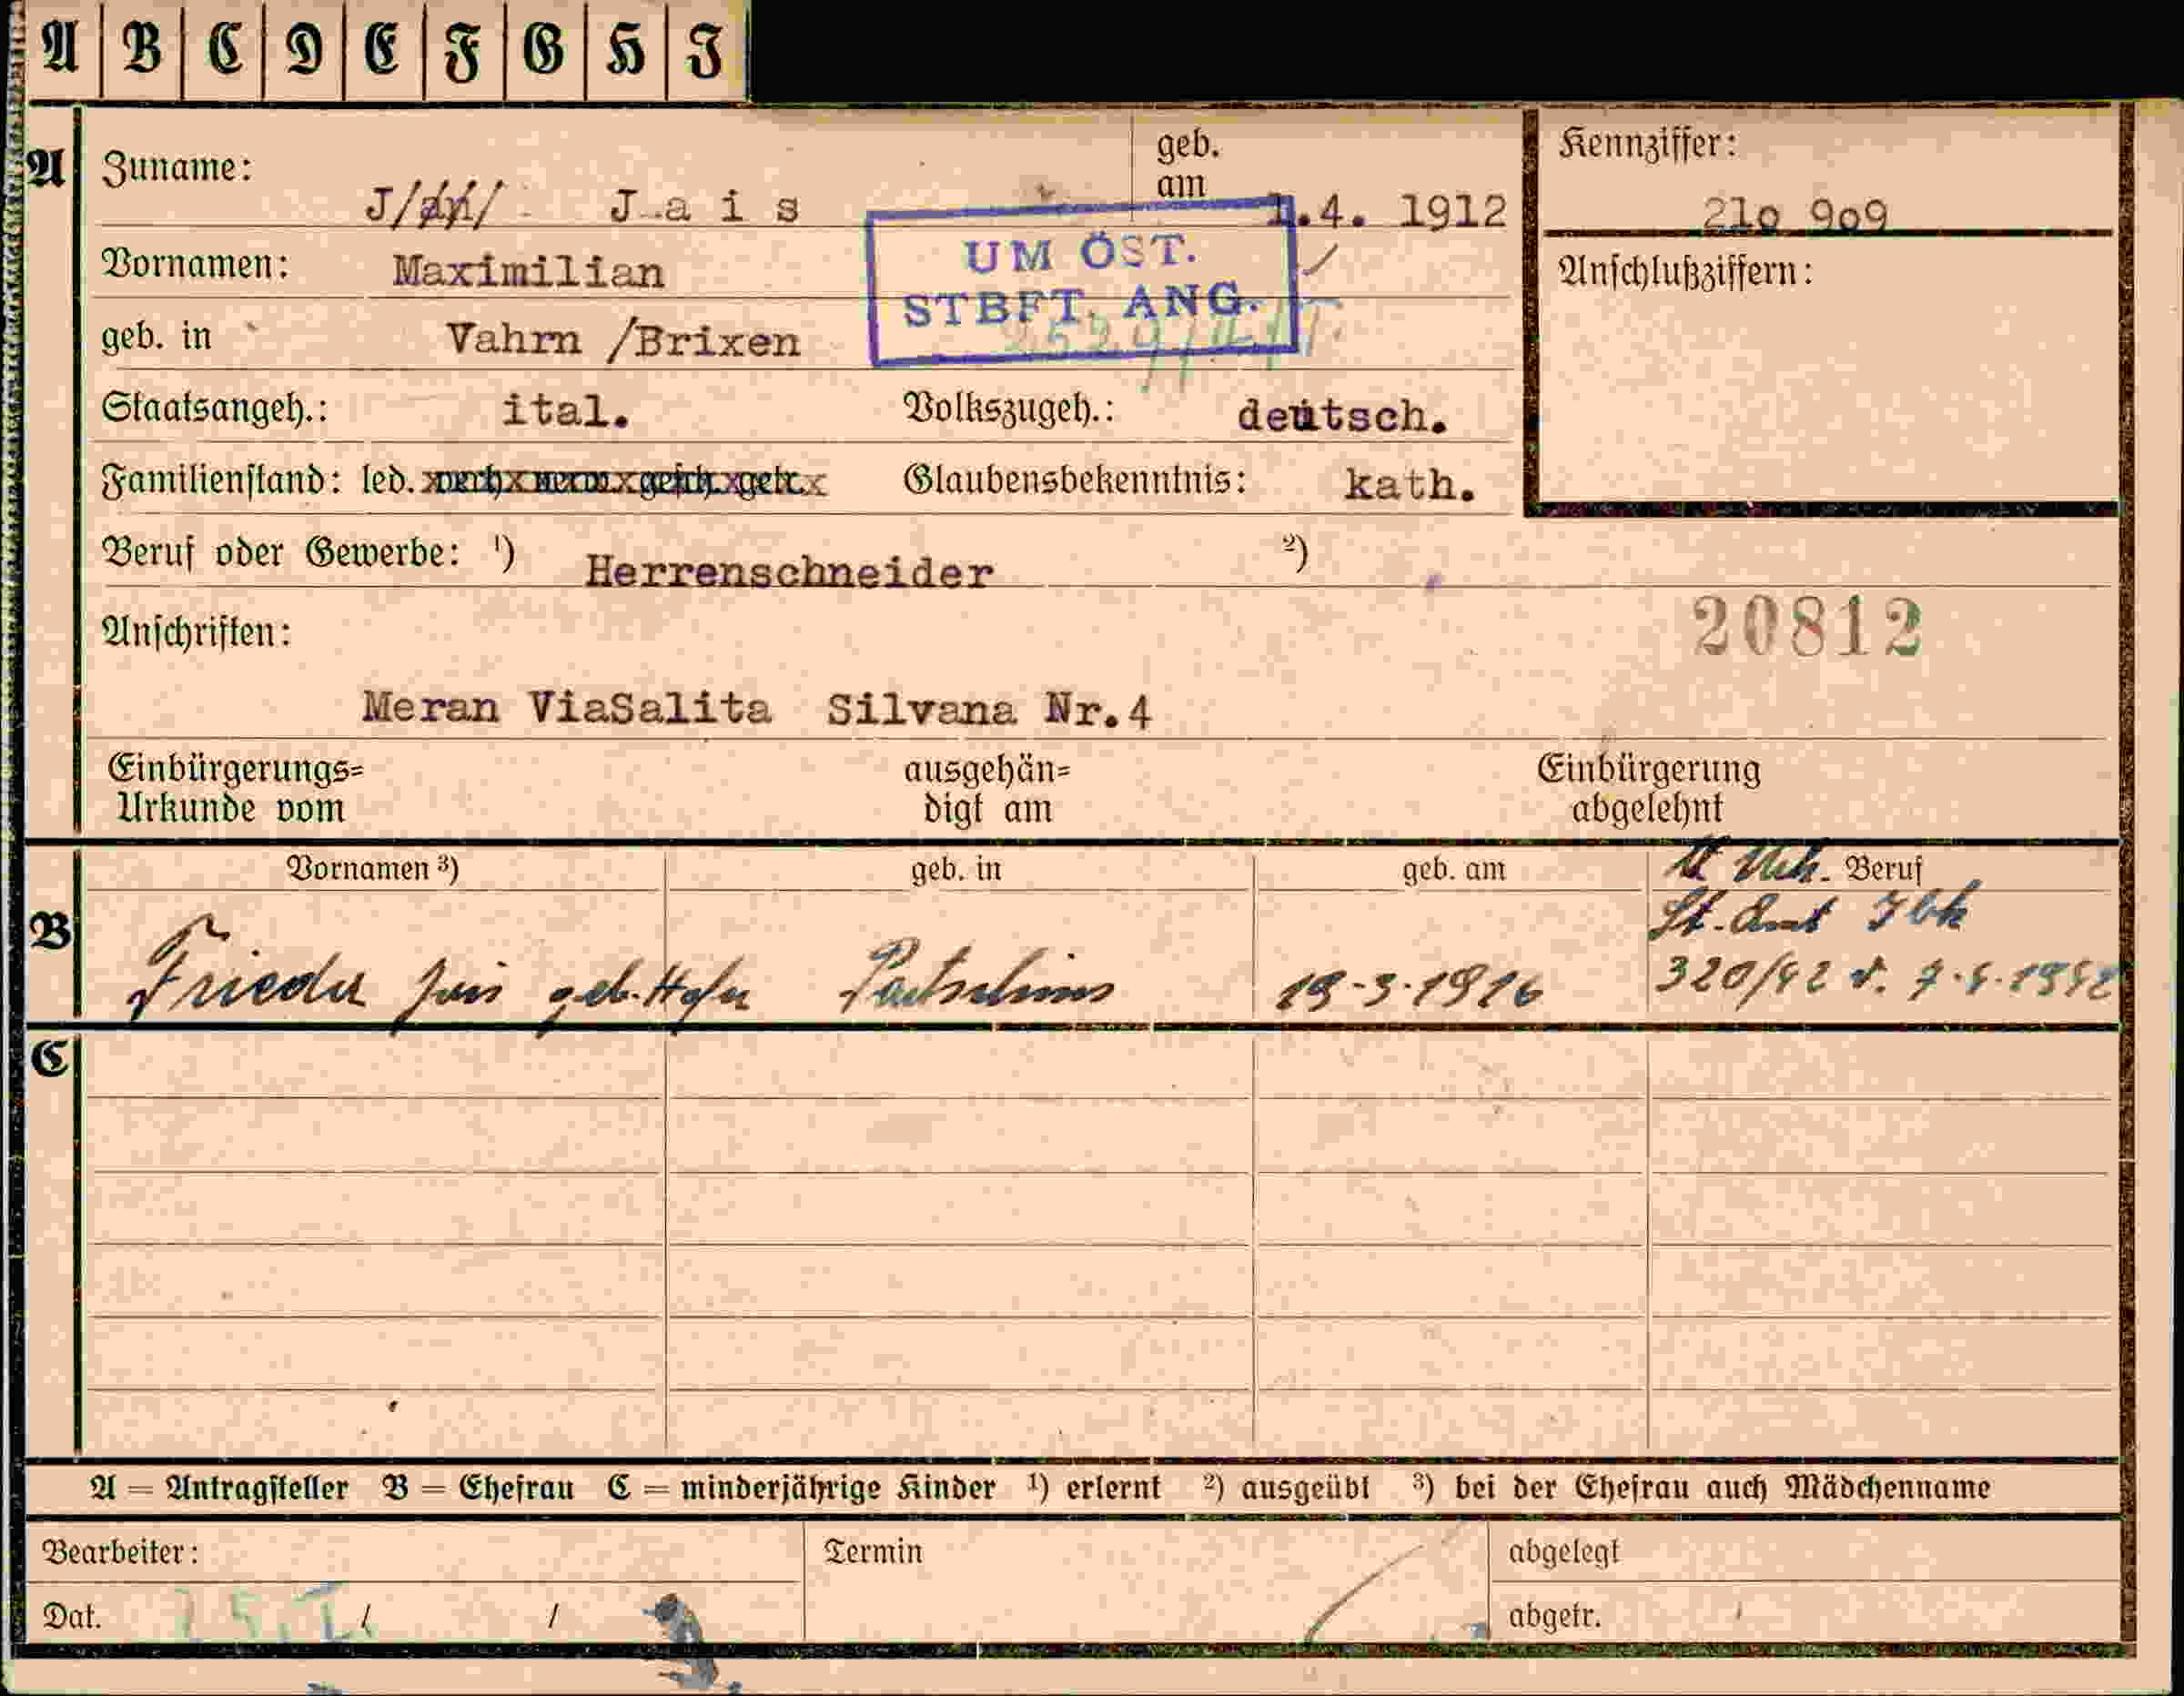 A B C D E F G H I
A Zuname: J a i s geb. am 1.4. 1912 Kennziffer: 21o 9o9
Vornamen: Maximilian UM ÖST. Anschlußziffern:
STBFT. ANG.
geb. in Vahrn /Brixen
Staatsangeh.: ital. Volkszugeh.: deutsch.
Familienstand: led. verh. verw. gesch. getr. Glaubensbekenntnis: kath.
Beruf oder Gewerbe: ¹) Herrenschneider ²)
Anschriften: 20812
Meran ViaSalita Silvana Nr.4
Einbürgerungs= ausgehän= Einbürgerung
Urkunde vom digt am abgelehnt
Vornamen ³) geb. in geb. am Beruf
St. Amt Ibk
B Frieda Jais geb. Hofer Partschins 19-3-1916 320/42
C
A = Antragsteller B = Ehefrau C = minderjährige Kinder ¹) erlernt ²) ausgeübt ³) bei der Ehefrau auch Mädchenname
Bearbeiter: Termin abgelegt
Dat. / / abgetr.